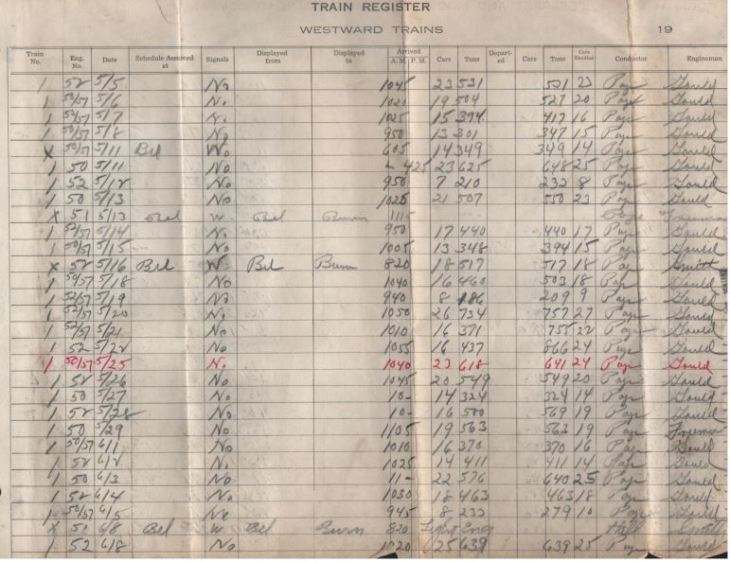 TRAIN REGISTER
WESTWARD TRAINS 19
Train No. Eng. No. Date Schedule Assumed at Signals Displayed from Displayed to Arrived A.M. P.M. Cars Tons Depart-ed Cars Tons Conductor Engineman
1 52 5/5 No 1045 23 531 531 23 Page Gould
1 50/57 5/6 No 1020 19 504 527 20 Page Gould
1 52/57 5/7 No 1025 15 394 417 16 Page Gould
1 50/57 5/8 No 950 13 301 347 15 Page Gould
X 50/57 5/11 Bel W 605 14 349 349 14 Page Gould
1 50 5/11 No 425 23 625 648 25 Page Gould
1 52 5/12 No 950 7 210 232 8 Page Gould
1 50 5/13 No 1025 21 507 550 23 Page Gould
X 51 5/13 Bel W Bel Burn 1115 Freeman
1 52/57 5/14 No 950 17 440 440 17 Page Gould
1 50/57 5/15 No 1005 13 348 394 15 Page Gould
X 52 5/16 Bel W Bel Burn 820 18 517 517 18 Page Smith
1 50/57 5/18 No 1040 16 460 503 18 Page Gould
1 52/57 5/19 No 940 8 186 209 9 Page Gould
1 52/57 5/20 No 1050 26 734 757 27 Page Gould
1 52/57 5/21 No 1010 16 371 22 Page Gould
1 52 5/22 No 1055 16 437 866 24 Page Gould
1 50/57 5/25 No 1040 23 618 641 24 Page Gould
1 52 5/26 No 1045 20 549 549 20 Page Gould
1 50 5/27 No 10- 14 324 324 14 Page Gould
1 52 5/28 No 10- 16 500 569 19 Page Gould
1 50 5/29 No 1105 19 563 563 19 Page Freeman
1 50/57 6/1 No 1010 16 370 370 16 Page Gould
1 52 6/2 No 1025 14 411 411 14 Page Gould
1 50 6/3 No 11- 22 576 640 25 Page Gould
1 52 6/4 No 1030 18 463 463 18 Page Gould
1 50/57 6/5 No 945 8 233 279 10 Page Gould
X 51 6/8 Bel W Bel Burn 820 Light Eng Hall Smith
1 52 6/8 No 1020 25 639 639 25 Page Gould